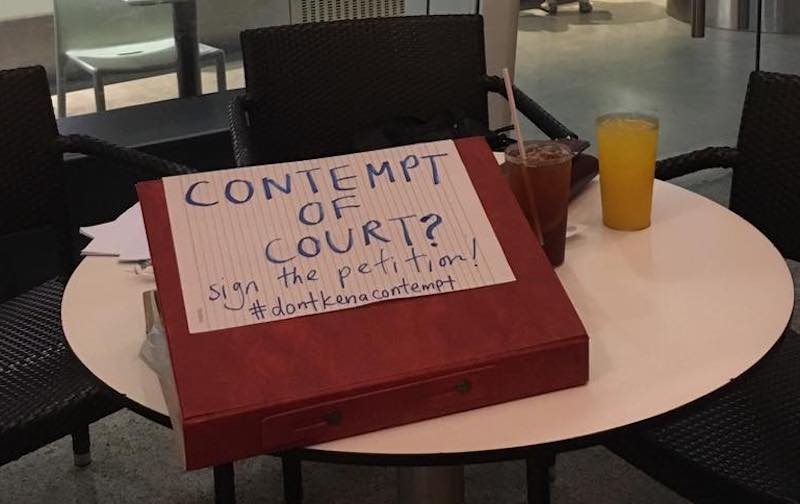 CONTEMPT
OF
COURT?
sign the petition!
#dontkenacontempt